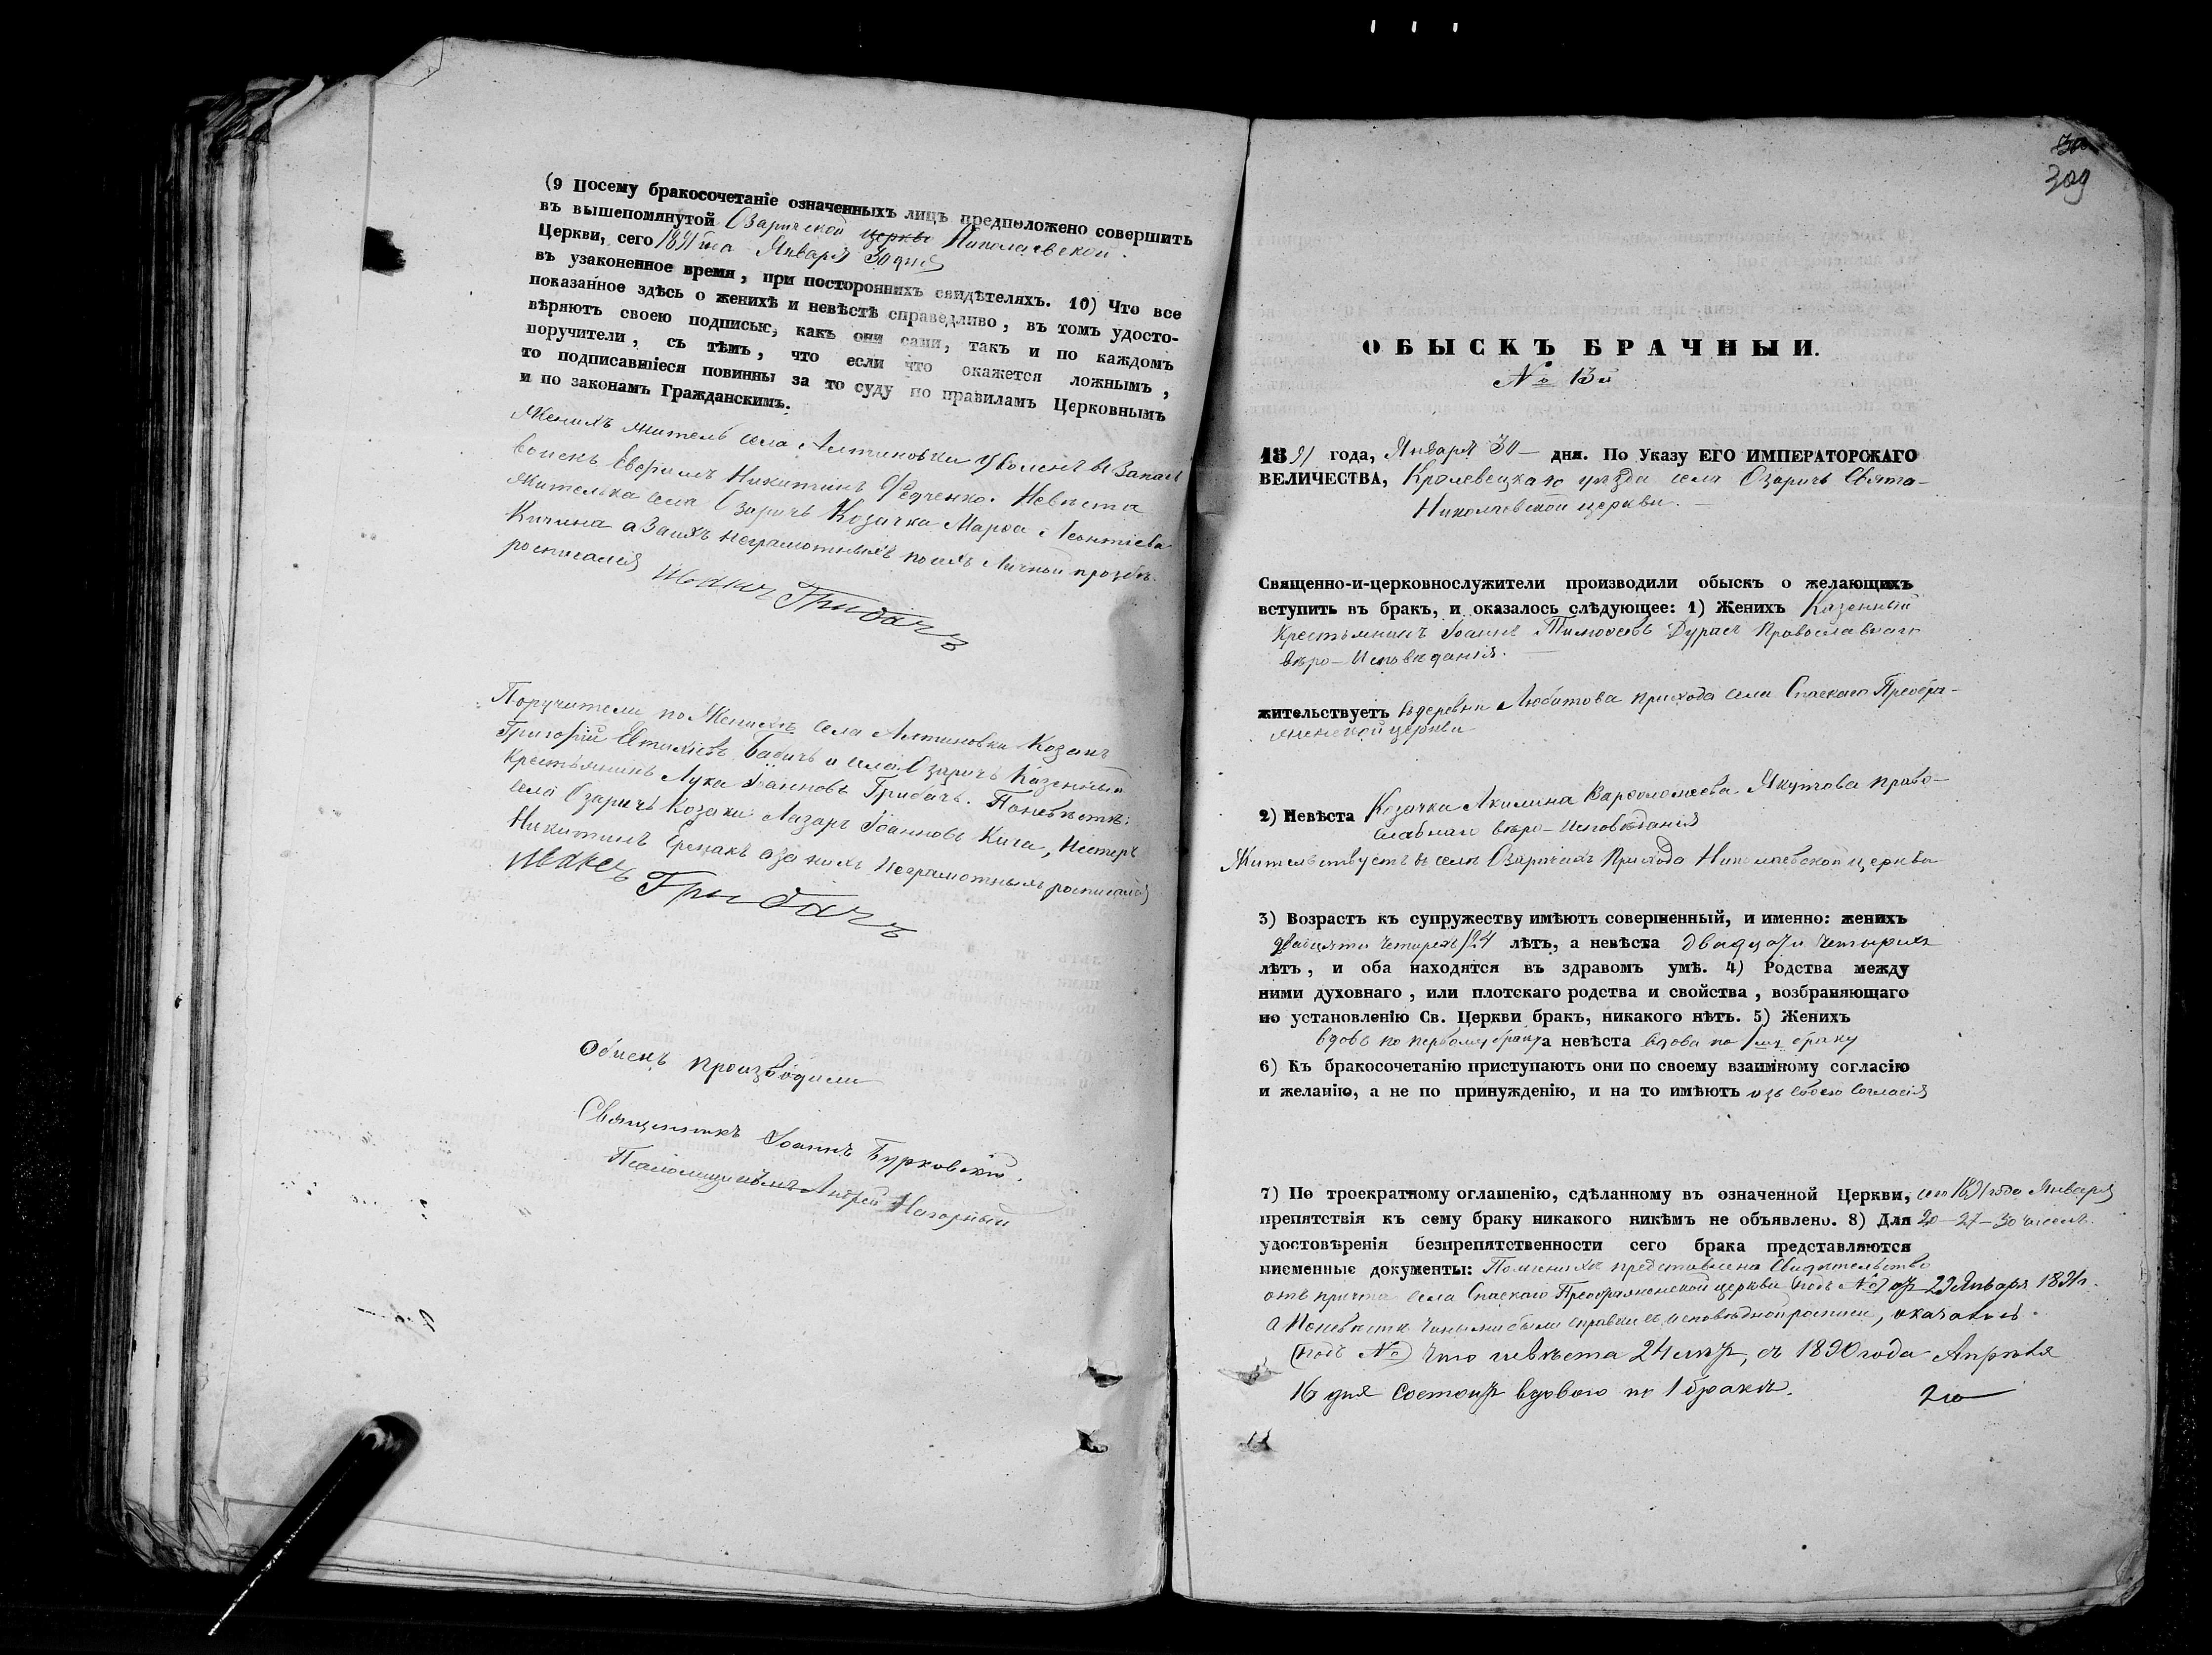 (9 Посему бракосочетаніе означенныхъ лицъ предположено совершить
въ вышепомянутой Озаричской церкви Николаевской
Церкви, сего 1891 года Января 30 дня
въ узаконенное время, при постороннихъ свидѣтеляхъ. 10) Что все
показанное здѣсь о женихѣ и невѣстѣ справедливо, въ томъ удосто-
вѣряютъ своею подписью, какъ они сами, такъ и по каждомъ
поручители, съ тѣмъ, что если что окажется ложнымъ,
то подписавшіеся повинны за то суду по правиламъ Церковнымъ
и по законамъ Гражданскимъ.
Женихъ житель села Алтиновки уволенъ въ Запасъ
войскъ Ефримъ Никитинъ Федченко. Невѣста
жителька села Озаричъ Козачка Марѳа Леонтіева
Кичина а за ихъ неграмотныхъ по ихъ личной прозбѣ
росписался Иванъ Грибачъ
Поручители по Женихѣ села Алтиновки Козакъ
Григорій Евтихіевъ Бабичъ и села Озаричъ Казенный
крестьянинъ Лука Іоанновъ Грибачъ. По невѣстѣ:
села Озаричъ Козаки: Лазарь Іоанновъ Кича, Нестеръ
Никитинъ Ермакъ а за нихъ неграмотныхъ росписался
Иванъ Грыбачъ
Обыскъ производили
Священникъ Іоаннъ Бурковскій.
Псаломщикъ Андрей Нагорный
309
ОБЫСКЪ БРАЧНЫЙ.
№ 13й
1891 года, Января 30 дня. По Указу ЕГО ИМПЕРАТОРСКАГО
ВЕЛИЧЕСТВА, Кролевецкаго уѣзда села Озаричъ Свято-
Николаевской церкви.
Священно-и-церковнослужители производили обыскъ о желающихъ
вступить въ бракъ, и оказалось слѣдующее: 1) Женихъ Казенный
Крестьянинъ Іоаннъ Тимоѳеевъ Дурасъ Православнаго
вѣро-Исповѣданія.
жительствуетъ въ деревни Любитова прихода села Спаскаго Преобра-
женской церкви
2) Невѣста Козачка Акилина Варѳоломеева Якутова право-
славнаго вѣро-исповѣданія
Жительствуетъ въ селѣ Озаричахъ Прихода Николаевской церкви
3) Возрастъ къ супружеству имѣютъ совершенный, и именно: женихъ
двадцяти четырехъ / 24 лѣтъ, а невѣста двадцати четырехъ
лѣтъ, и оба находятся въ здравомъ умѣ. 4) Родства между
ними духовнаго, или плотскаго родства и свойства, возбраняющаго
по установленію Св. Церкви бракъ, никакого нѣтъ. 5) Женихъ
вдовъ по первому браку а невѣста вдова по 1мъ браку
6) Къ бракосочетанію приступаютъ они по своему взаимному согласію
и желанію, а не по принужденію, и на то имѣютъ согласія
7) По троекратному оглашенію, сдѣланному въ означенной Церкви, сего 1891 года Января
препятствія къ сему браку никакого никѣмъ не объявлено. 8) Для 20-27-30 чиселъ.
удостовѣренія безпрепятственности сего брака представляются
письменные документы: По женихѣ представлена Свидѣтельство
отъ причта села Спаскаго Преображенской церкви подъ № отъ 29 Января 1891 г.
а по невѣстѣ были справки исповѣдной росписи, оказалось
(подъ №) что невѣста 24 лѣтъ, съ 1890 года Апрѣля
16 дня состоитъ вдовою по 1 бракѣ.